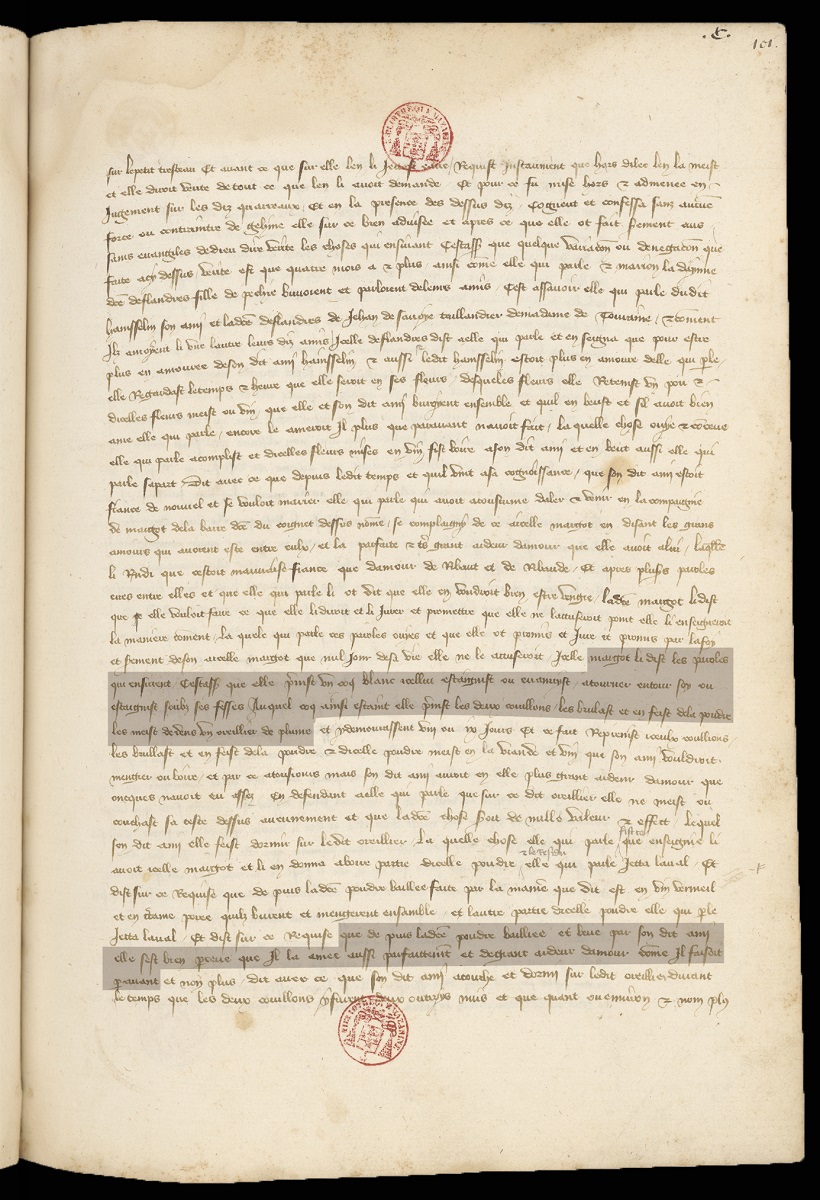 .C.
101.
BIBLIOTHEQUE MAZARINE
sur le petit tresteau Et avant ce que sur elle len li jettast eaue / Requist instamment que hors dilec len la meist
et elle diroit verite de tout ce que len li avoit demande Et pour ce fu mise hors & admenee en
Jugement sur les diz quarreaux / Et en la presence des dessus diz / Cogneut et confessa sanz aucune
force ou contrainte de gehine elle sur ce bien advisee et apres ce que elle ot fait serement aus
sains euvangiles de dieu dire verite les choses qui ensuient Cestass que quelque variacon ou denegacon que
faite ait dessus / verite est que quatre mois a & plus ainsi come elle qui parle & marion la daynne
dce de flandres fille de pechie buvoient et parloient de leurs amis / Cest assavoir elle qui parle du dit
hainsselin son ami et ladce de flandres de Jehan de savoye taillandier de madame de Touraine / & coment
Ilz amoyent li une lautre leurs diz amis / Icelle de flandres dist a elle qui parle et enseigna que pour estre
plus en amouree de son dit ami hainsselin & aussi le dit hainsselin estoit plus en amoure delle qui parle
elle Regardast le temps & heure que elle seroit en ses fleurs / desqueles fleurs elle Retenist un pou &
dicelles fleurs meist ou vin que elle et son dit ami buroyent ensemble et quil en beust et sil avoit bien
ame elle qui parle / encore le ameroit Il plus que paravant navoit fait / la quelle chose ouye &
elle qui parle acomplist et dicelles fleurs mises en vin fist boire a son dit ami et en beut aussi elle qui
parle sa part Dit avec ce que depuis ledit temps et quil vint a sa cognoissance / que son dit ami estoit
fiance de nouvel et se vouloit marier elle qui parle qui avoit acoustume daler & venir en la compaignie
de margot de la barre dce du coignet dessus nome / se complaigny de ce a icelle margot en disant les grans
amours qui avoient este entre eulx / et la parfaite & ts grant ardeur damour que elle avoit a lui / laqlle
li Rndi que cestoit mauvaise fiance que damour de Ribaut et de Ribaude / Et apres plusrs paroles
eues entre elles et que elle qui parle li ot dit que elle en voudroit bien estre vengie / ladce margot li dist
que se elle vouloit faire ce que elle li diroit et li jurer et promettre que elle ne lacuseroit point elle li enseigneroit
la maniere coment / La quele qui parle ces paroles ouyes et que elle ot promis et jure et promis par la foy
et serement de son a icelle margot que nul jour de sa vie elle ne le acuseroit / Icelle margot li dist les paroles
qui ensuient / Cestass que elle prinst un coq blanc icellui estaignist ou atourner entour son ou
estaignist soubz ses fesses / Au quel coq ainsi estaint elle prinst les deux couillons / les brulast et en feist de la poudre
les meist dedens un oreillier de plume et y demourassent viii ou ix jours Et ce fait Reprenist iceulx couillons /
les brullast et en feist de la poudre & dicelle poudre meist en la viande et vin que son ami vouldroit
mengier ou boire / et par ce atousiours mais son dit ami auroit en elle plus grant ardeur damour que
oncques navoit eu assez En defendant a elle qui parle que sur ce dit oreillier elle ne meist ou
couchast sa teste dessus aucunement et que ladce chose seroit de nulle valeur & effect / Lequel
son dit ami elle feist dormir sur ledit oreillier La quelle chose elle qui parle fist ce que enseignie li
avoit icelle margot et li en donna a boire partie dicelle poudre / & le residu elle qui parle jetta laval / Et
dist sur ce Requise que de puis ladce poudre baillee faite par la maniere que dit est en vin vermeil
et en poree quilz burent et mengerent ensemble / et lautre partie dicelle poudre elle qui parle
jetta laval / Et dist sur ce Requise que de puis ladce poudre baillee et beue par son dit ami
elle sest bien perceue que Il la amee aussi parfaitement et de grant ardeur damour come Il faisoit
p avant et non plus / dit avec ce que son dit ami a couche et dormi sur ledit oreillier durant
le temps que les deux couillons y furent deux ou trois nuis et que quant ou environ & nom plus
BIBLIOTHEQUE MAZARINE